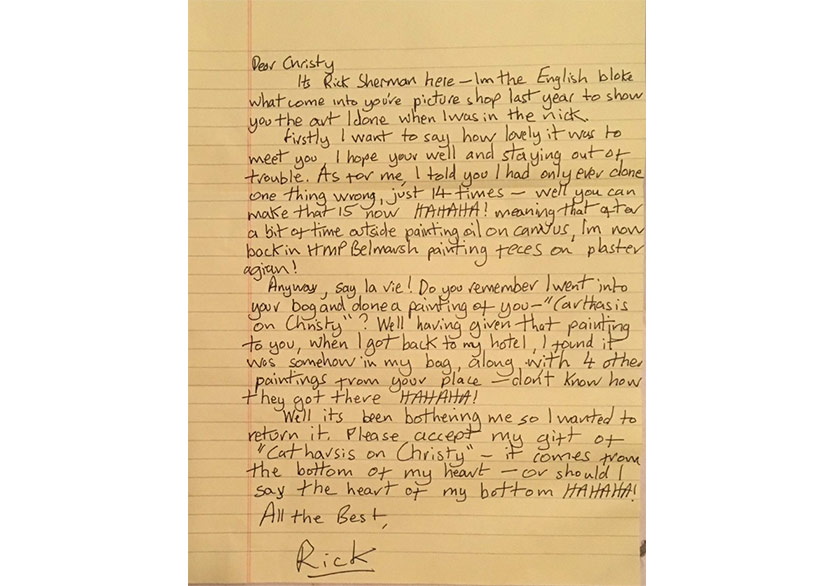 Dear Christy
Its Rick Sherman here – Im the English bloke
what come into you're picture shop last year to show
you the art I done when I was in the nick.
Firstly I want to say how lovely it was to
meet you, I hope your well and staying out of
trouble. As for me, I told you I had only ever done
one thing wrong, just 14 times – well you can
make that 15 now HAHAHA! meaning that after
a bit of time outside painting oil on canvus, Im now
back in HMP Belmarsh painting feces on plaster
agian!
Anyway, say la vie! Do you remember I went into
your bog and done a painting of you – "Carthasis
on Christy"? Well having given that painting
to you, when I got back to my hotel, I found it
was somehow in my bag, along with 4 other
paintings from your place – don't know how
they got there HAHAHA!
Well its been bothering me so I wanted to
return it. Please accept my gift of
"Catharsis on Christy" – it comes from
the bottom of my heart – or should I
say the heart of my bottom HAHAHA!
All the Best,
Rick